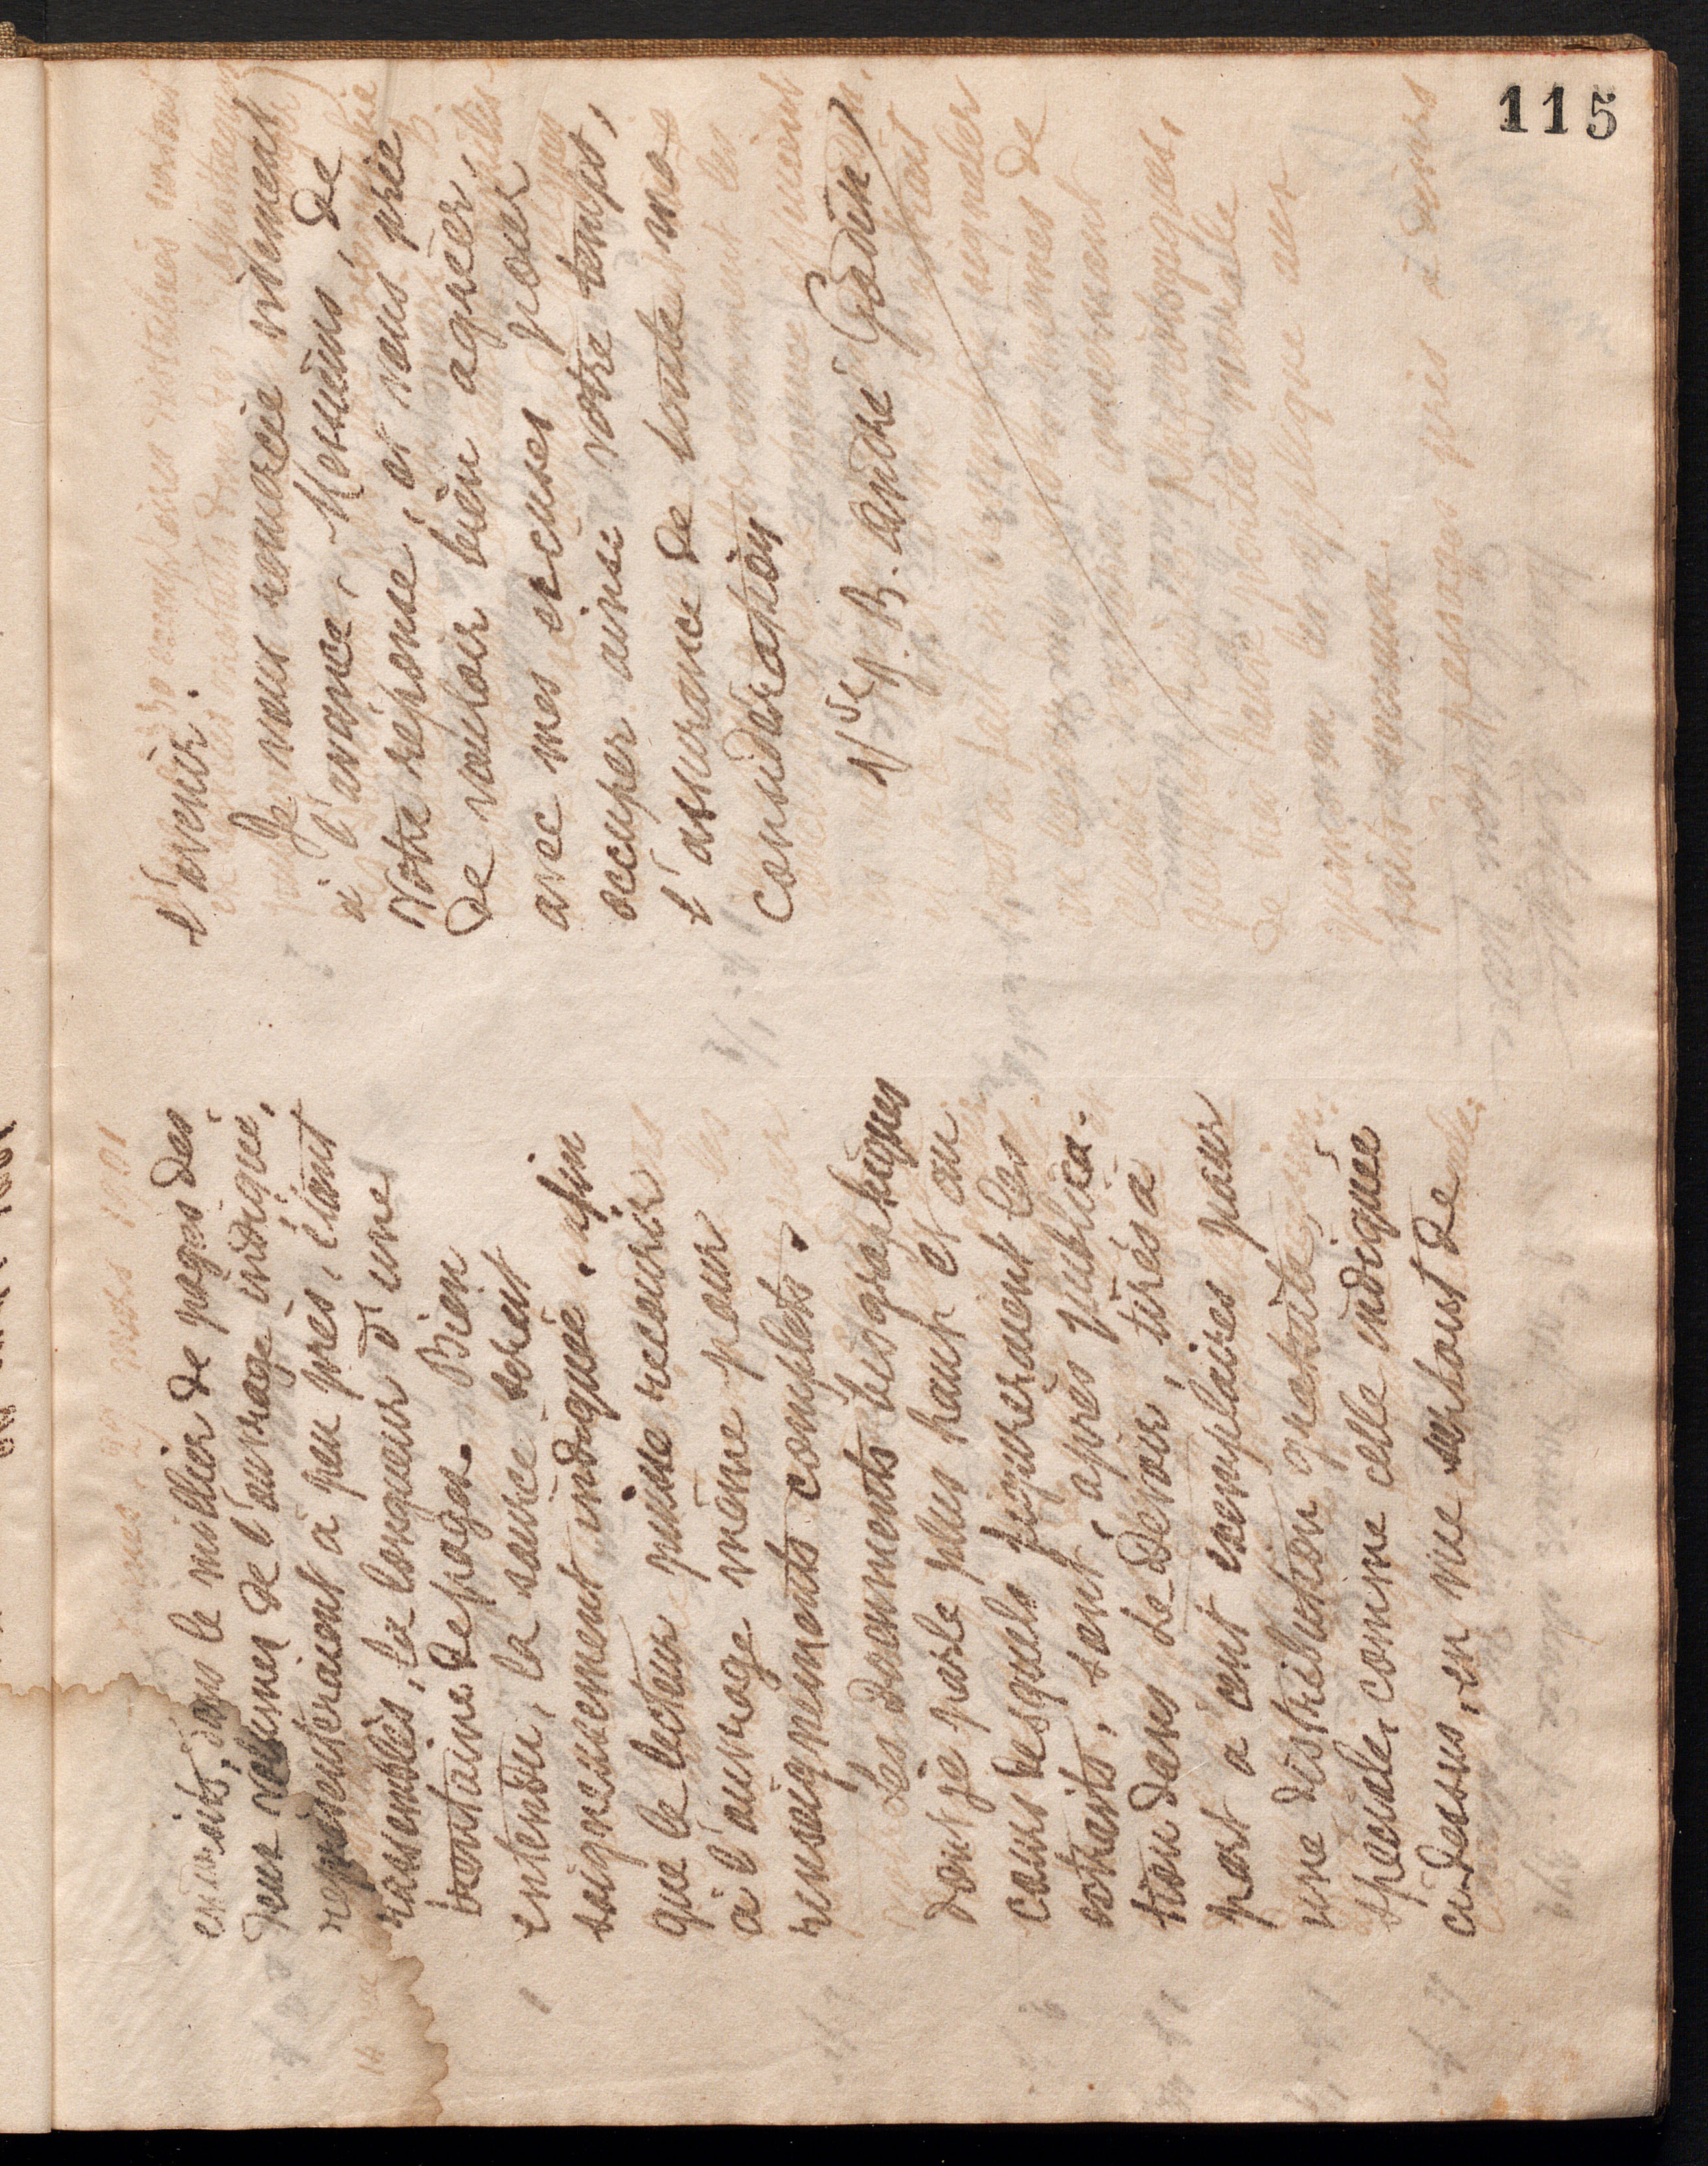 115
extraits, dans le millier de pages des
deux volumes de l'ouvrage indiqué,
représenteraient à peu près, étant
rassemblés, la longueur d'une
trentaine de pages. Bien
entendu, la source serait
soigneusement indiquée. afin
que le lecteur puisse recourir
à l'ouvrage même pour
renseignements complets.
Les documents biographiques
dont je parle plus haut et au
cours desquels figureraient les
extraits, sont, après publica-
tion dans Le Devoir, tirés à
part à cent exemplaires pour
une distribution gratuite,
spéciale, comme celle indiquée
ci-dessus, en vue surtout de
l'avenir.
Je vous remercie vivement
à l'avance, Messieurs, de
Votre réponse, et vous prie
de vouloir bien agréer,
avec mes excuses pour
occuper ainsi votre temps,
l'assurance de toute ma
considération
Vve J. B. André Godin